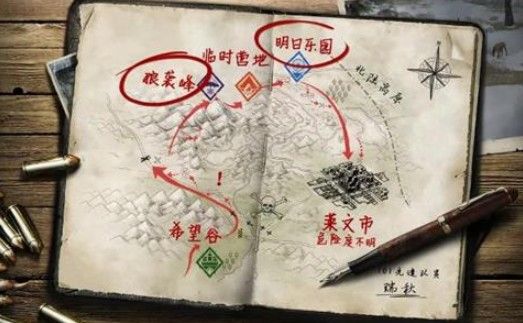 临时营地
明日乐园
狼袭峰
北陆高原
!
莱文市
危险度不明
希望谷
101先遣队员
瑞秋